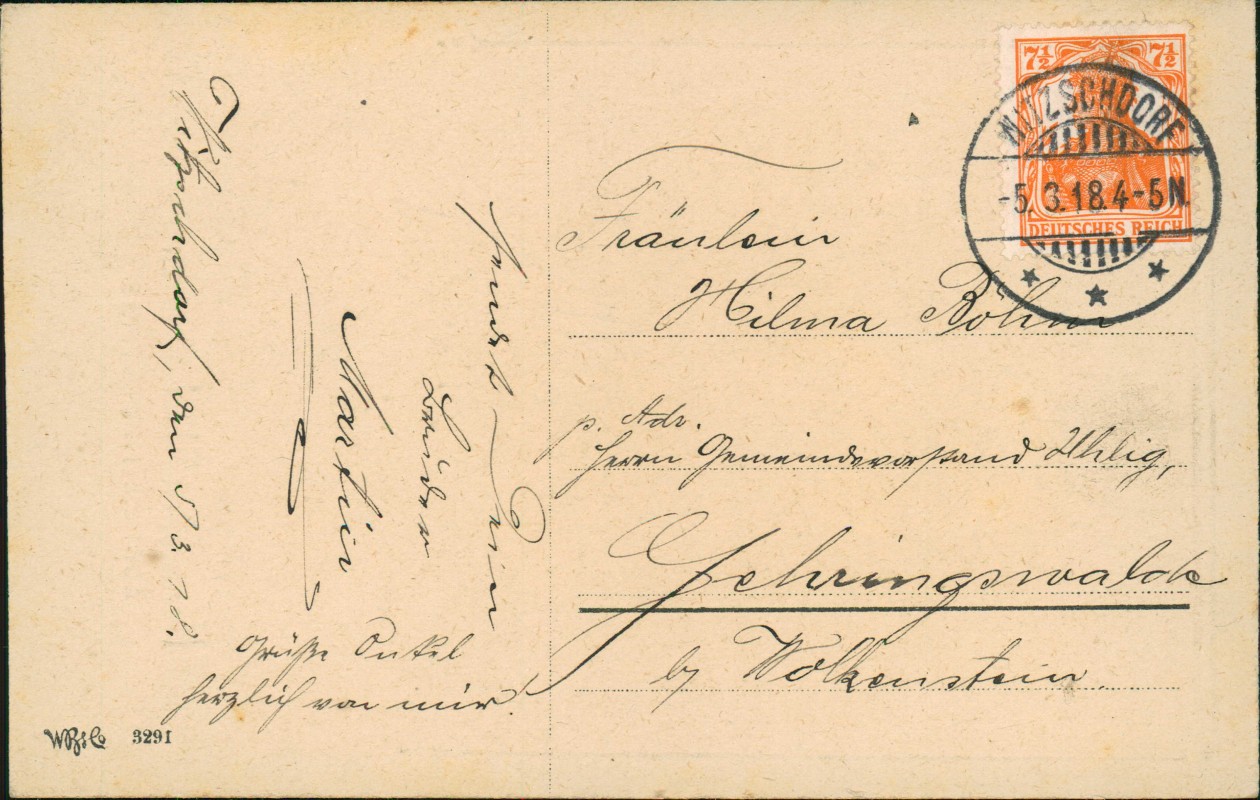 Witzschdorf, den 5/3. 18.
sendet Dein
Bruder
Martin
Grüße Onkel
herzlich von mir!
W.B.&Co 3291
7½ 7½
DEUTSCHES REICH
WITZSCHDORF
-5.3.18.4-5N.
Fräulein
Hilma Böhm
p. Adr.
Herrn Gemeindevorstand Uhlig,
Gehringswalde
by Wolkenstein.